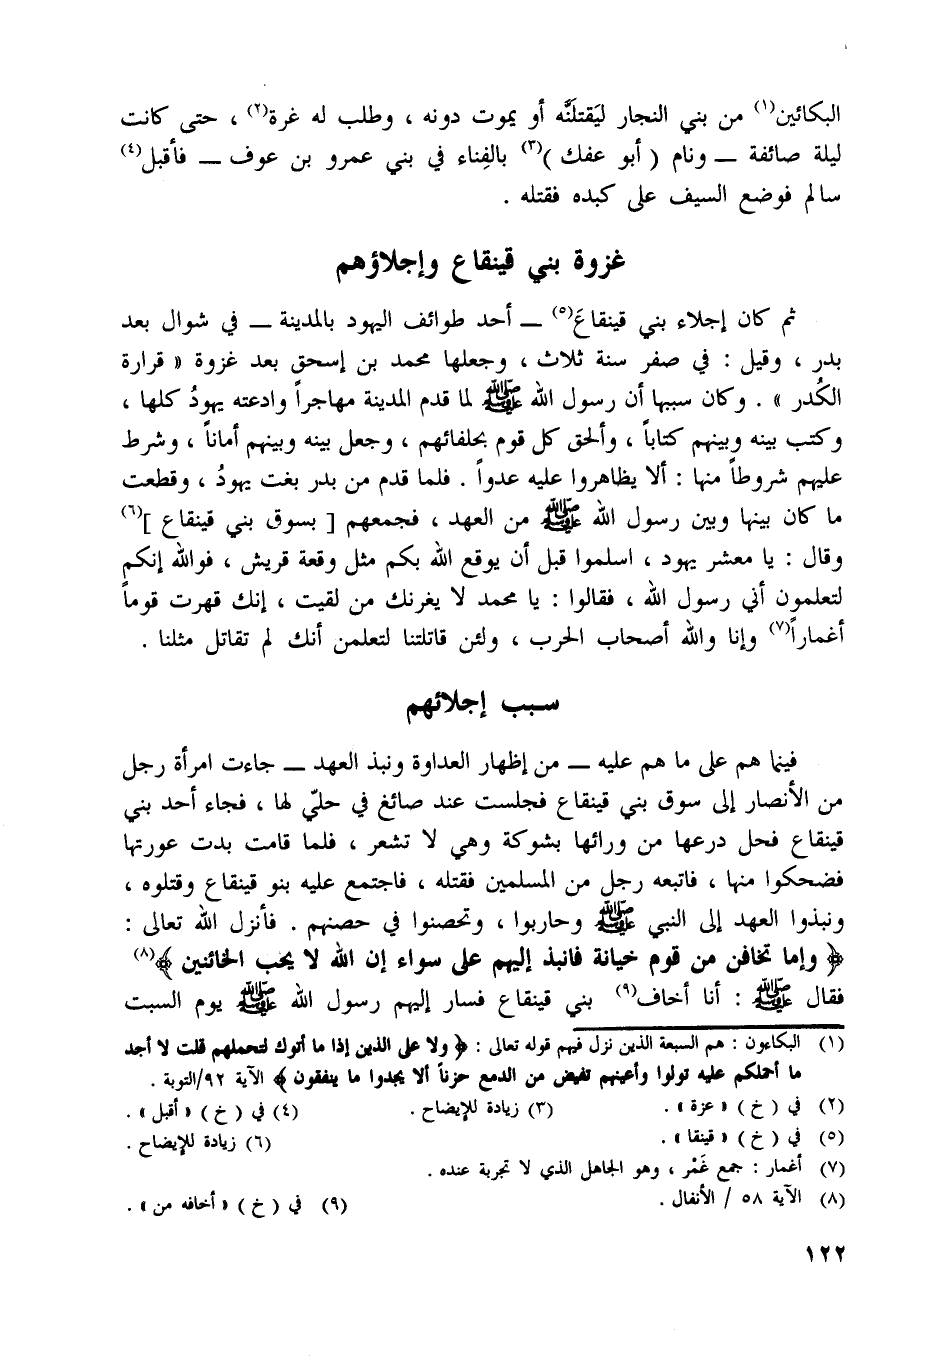 البكائين(١) من بني النجار ليَقتلنَّه أو يموت دونه ، وطلب له غرة(٢) ، حتى كانت
ليلة صائفة ــ ونام ( أبو عفك )(٣) بالفِناء في بني عمرو بن عوف ــ فأقبل(٤)
سالم فوضع السيف على كبده فقتله .
غزوة بني قينقاع وإجلاؤهم
ثم كان إجلاء بني قينقاعَ(٥) ــ أحد طوائف اليهود بالمدينة ــ في شوال بعد
بدر ، وقيل : في صفر سنة ثلاث ، وجعلها محمد بن إسحق بعد غزوة « قرارة
الكُدر » . وكان سببها أن رسول الله ﷺ لما قدم المدينة مهاجراً وادعته يهودُ كلها ،
وكتب بينه وبينهم كتاباً ، وألحق كل قوم بحلفائهم ، وجعل بينه وبينهم أماناً ، وشرط
عليهم شروطاً منها : ألا يظاهروا عليه عدواً . فلما قدم من بدر بغت يهودُ ، وقطعت
ما كان بينها وبين رسول الله ﷺ من العهد ، فجمعهم [ بسوق بني قينقاع ](٦)
وقال : يا معشر يهود ، اسلموا قبل أن يوقع الله بكم مثل وقعة قريش ، فوالله إنكم
لتعلمون أني رسول الله ، فقالوا : يا محمد لا يغرنك من لقيت ، إنك قهرت قوماً
أغماراً(٧) وإنا والله أصحاب الحرب ، ولئن قاتلتنا لتعلمن أنك لم تقاتل مثلنا .
سبب إجلائهم
فبينما هم على ما هم عليه ــ من إظهار العداوة ونبذ العهد ــ جاءت امرأة رجل
من الأنصار إلى سوق بني قينقاع فجلست عند صائغ في حليّ لها ، فجاء أحد بني
قينقاع فحل درعها من ورائها بشوكة وهي لا تشعر ، فلما قامت بدت عورتها
فضحكوا منها ، فاتبعه رجل من المسلمين فقتله ، فاجتمع عليه بنو قينقاع وقتلوه ،
ونبذوا العهد إلى النبي ﷺ وحاربوا ، وتحصنوا في حصنهم . فأنزل الله تعالى :
﴿ وإما تخافن من قوم خيانة فانبذ إليهم على سواء إن الله لا يحب الخائنين ﴾(٨)
فقال ﷺ : أنا أخاف(٩) بني قينقاع فسار إليهم رسول الله ﷺ يوم السبت
(١) البكاءون : هم السبعة الذين نزل فيهم قوله تعالى : ﴿ ولا على الذين إذا ما أتوك لتحملهم قلت لا أجد
ما أحملكم عليه تولوا وأعينهم تفيض من الدمع حزناً ألا يجدوا ما ينفقون ﴾ الآية ٩٢/التوبة .
(٢) في ( خ ) « عزة » . (٣) زيادة للإيضاح . (٤) في ( خ ) « أقبل » .
(٥) في ( خ ) « قينقا » . (٦) زيادة للإيضاح .
(٧) أغمار : جمع غَمْر ، وهو الجاهل الذي لا تجربة عنده .
(٨) الآية ٥٨ / الأنفال . (٩) في ( خ ) « أخافه من » .
١٢٢